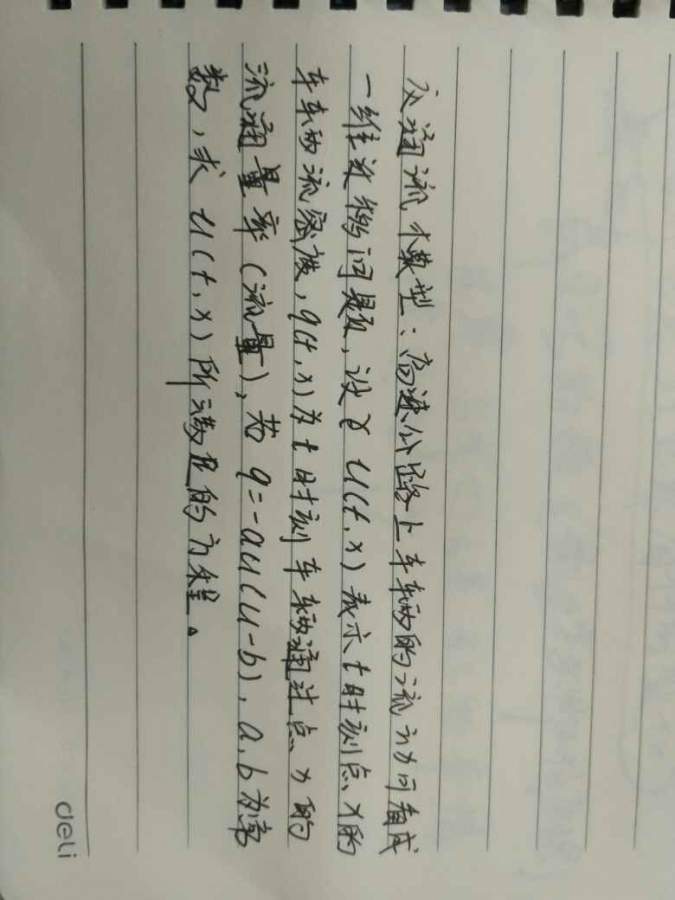 交通流模型：高速公路上车辆的流动可看成
一维连续问题，设 u(t,x) 表示 t 时刻点 x 的
车辆流密度，q(t,x) 为 t 时刻车辆通过点 x 的
流通量率(流量)，若 q=-au(u-b)，a,b 为常
数，求 u(t,x) 所满足的方程。
deli